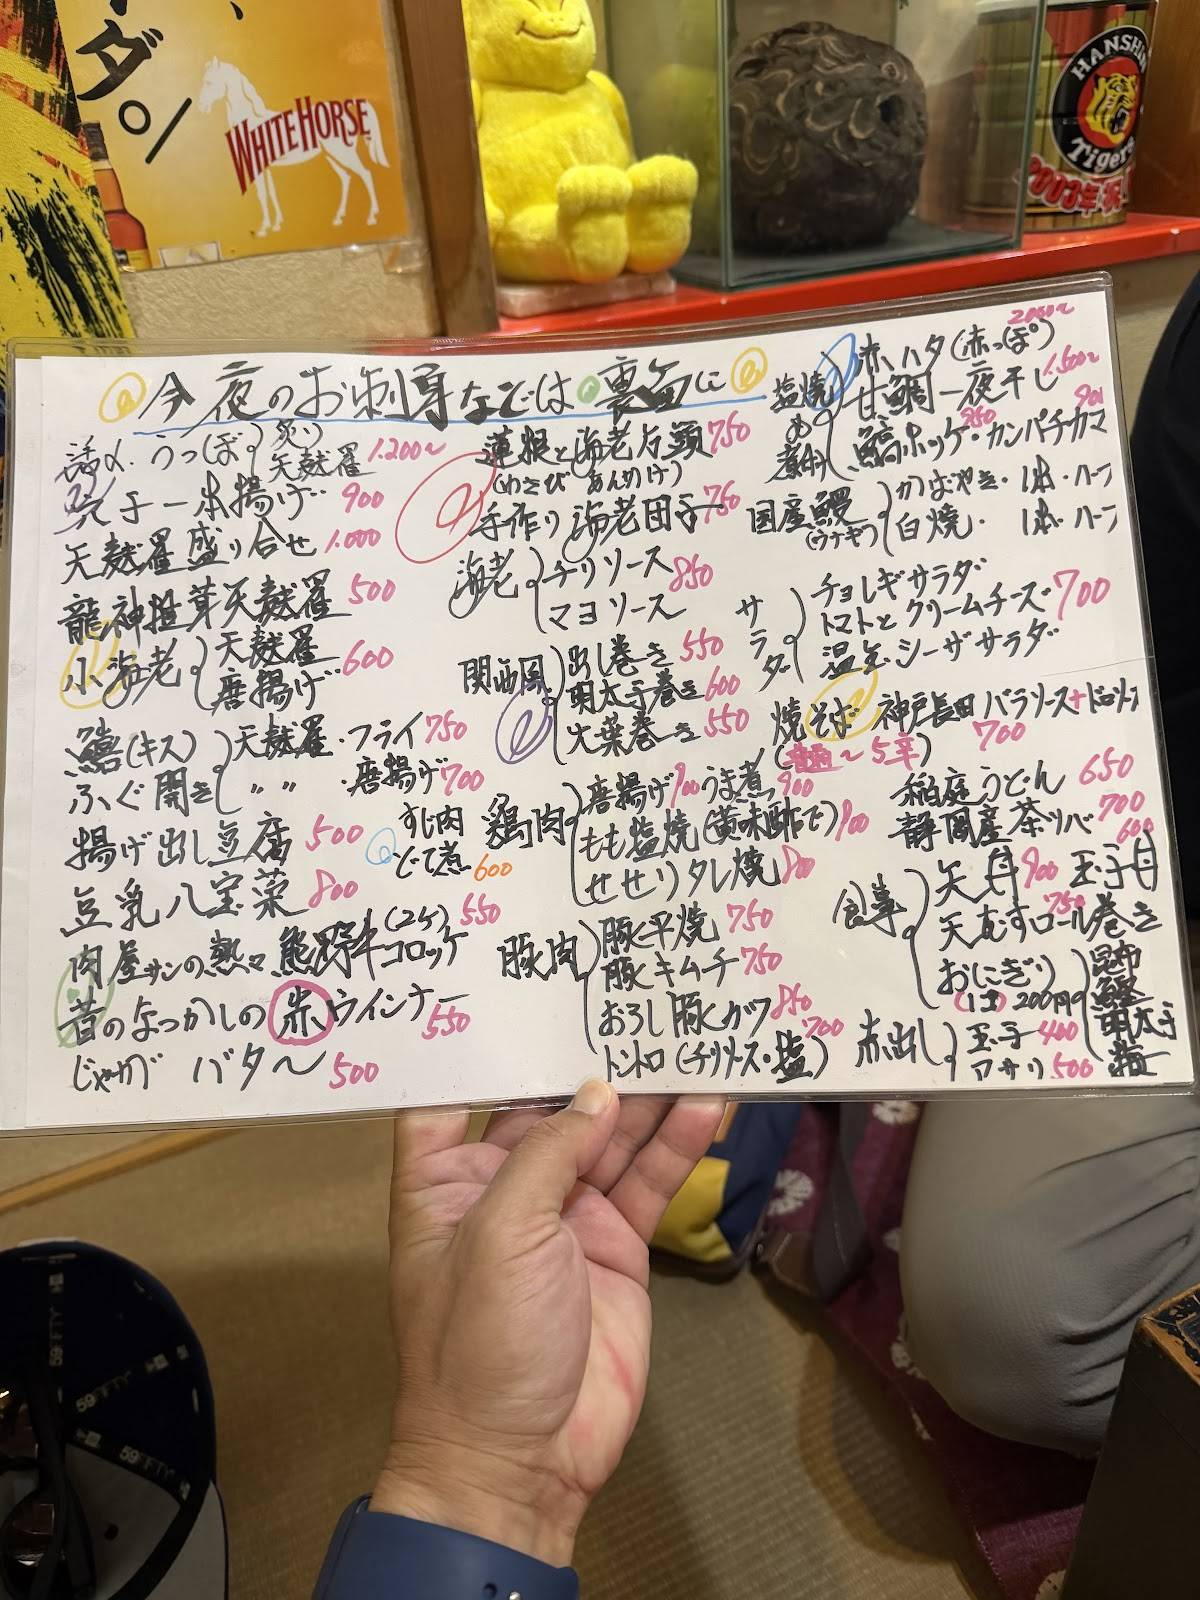 ダ。
WHITE HORSE
HANSHIN
Tigers
2003年
今夜のお刺身などは裏面に
うつぼ 炙り 天麩羅 1.200~
穴子一本揚げ 900
天麩羅盛り合せ 1.000
龍神椎茸天麩羅 500
小海老 天麩羅 唐揚げ 600
鱚(キス) 天麩羅・フライ 750
ふぐ開き 〃 〃 ・唐揚げ 700
揚げ出し豆腐 500
豆乳八宝菜 800
肉屋サンの熱々熊野牛コロッケ (2ケ) 550
昔のなつかしの赤ウインナー 550
じゃがバター 500
すじ肉
どて煮 600
蓮根と海老万頭 750
(わさびあんかけ)
手作り海老団子 750
海老 チリソース マヨソース 850
関西風 出し巻き 550
明太子巻き 600
大葉巻き 550
鶏肉 唐揚げ 900 うま煮 900
もも塩焼(黄味酢で) 900
せせりタレ焼 800
豚肉 豚平焼 750
豚キムチ 750
おろし豚カツ 850
トントロ(チリソース・塩) 700
塩焼 煮付 赤ハタ(赤っぽ) 2000~
甘鯛一夜干し 1.500~
縞ホッケ 850・カンパチカマ 900
国産鰻 (ウナギ) かばやき・1本・ハーフ
白焼・1本・ハーフ
サラダ チョレギサラダ
トマトとクリームチーズ 700
温玉シーザサラダ
焼そば 神戸長田バラソース+ドロソース
~5辛) 700
稲庭うどん 650
静岡産茶ソバ 700
食事 天丼 900 玉子丼 600
天むすロール巻き 750
おにぎり (1コ) 200円 昆布 鰹 明太子 梅
赤出し 玉子 400
アサリ 500
59FIFTY
59FIFTY
59FIFTY